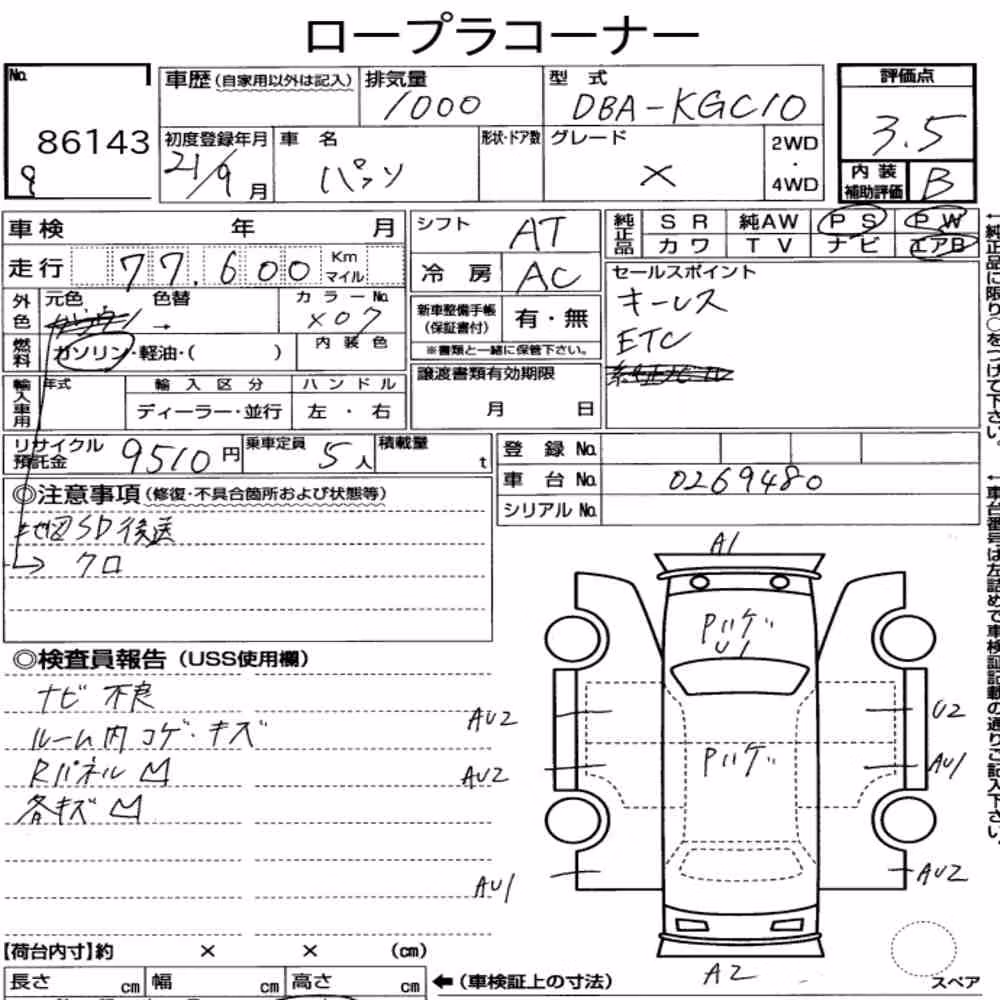 ロープラコーナー
No.
86143
9
車歴(自家用以外は記入)
排気量
1000
型式
DBA-KGC10
評価点
3.5
初度登録年月
21/9月
車名
パッソ
形状・ドア数
グレード
×
2WD
・
4WD
内装
補助評価
B
車検 年 月
シフト
AT
純正品
SR 純AW PS PW
カワ TV ナビ エアB
走行 77,600 Km
マイル
冷房
AC
セールスポイント
キーレス
ETC
外色
元色 色替
→
カラーNo.
X07
新車整備手帳
(保証書付)
有・無
※書類と一緒に保管下さい。
燃料
ガソリン・軽油・( )
内装色
輸入車用
年式
輸入区分
ハンドル
ディーラー・並行
左・右
譲渡書類有効期限
月 日
リサイクル
預託金
9510円
乗車定員
5人
積載量
t
登録No.
車台No.
0269480
シリアルNo.
◎注意事項(修復・不具合箇所および状態等)
地図SD後送
→クロ
◎検査員報告(USS使用欄)
ナビ不良
ルーム内コゲ・キズ
Rパネル凹
各キズ凹
A1
Pハゲ
U1
AU2
U2
Pハゲ
AU2
AU1
AU1
AU2
A2
スペア
【荷台内寸】約 × × (cm)
長さ cm 幅 cm 高さ cm
←(車検証上の寸法)
←純正品に限り○をつけて下さい。
←車台番号は左詰めで車検証記載の通りご記入下さい。